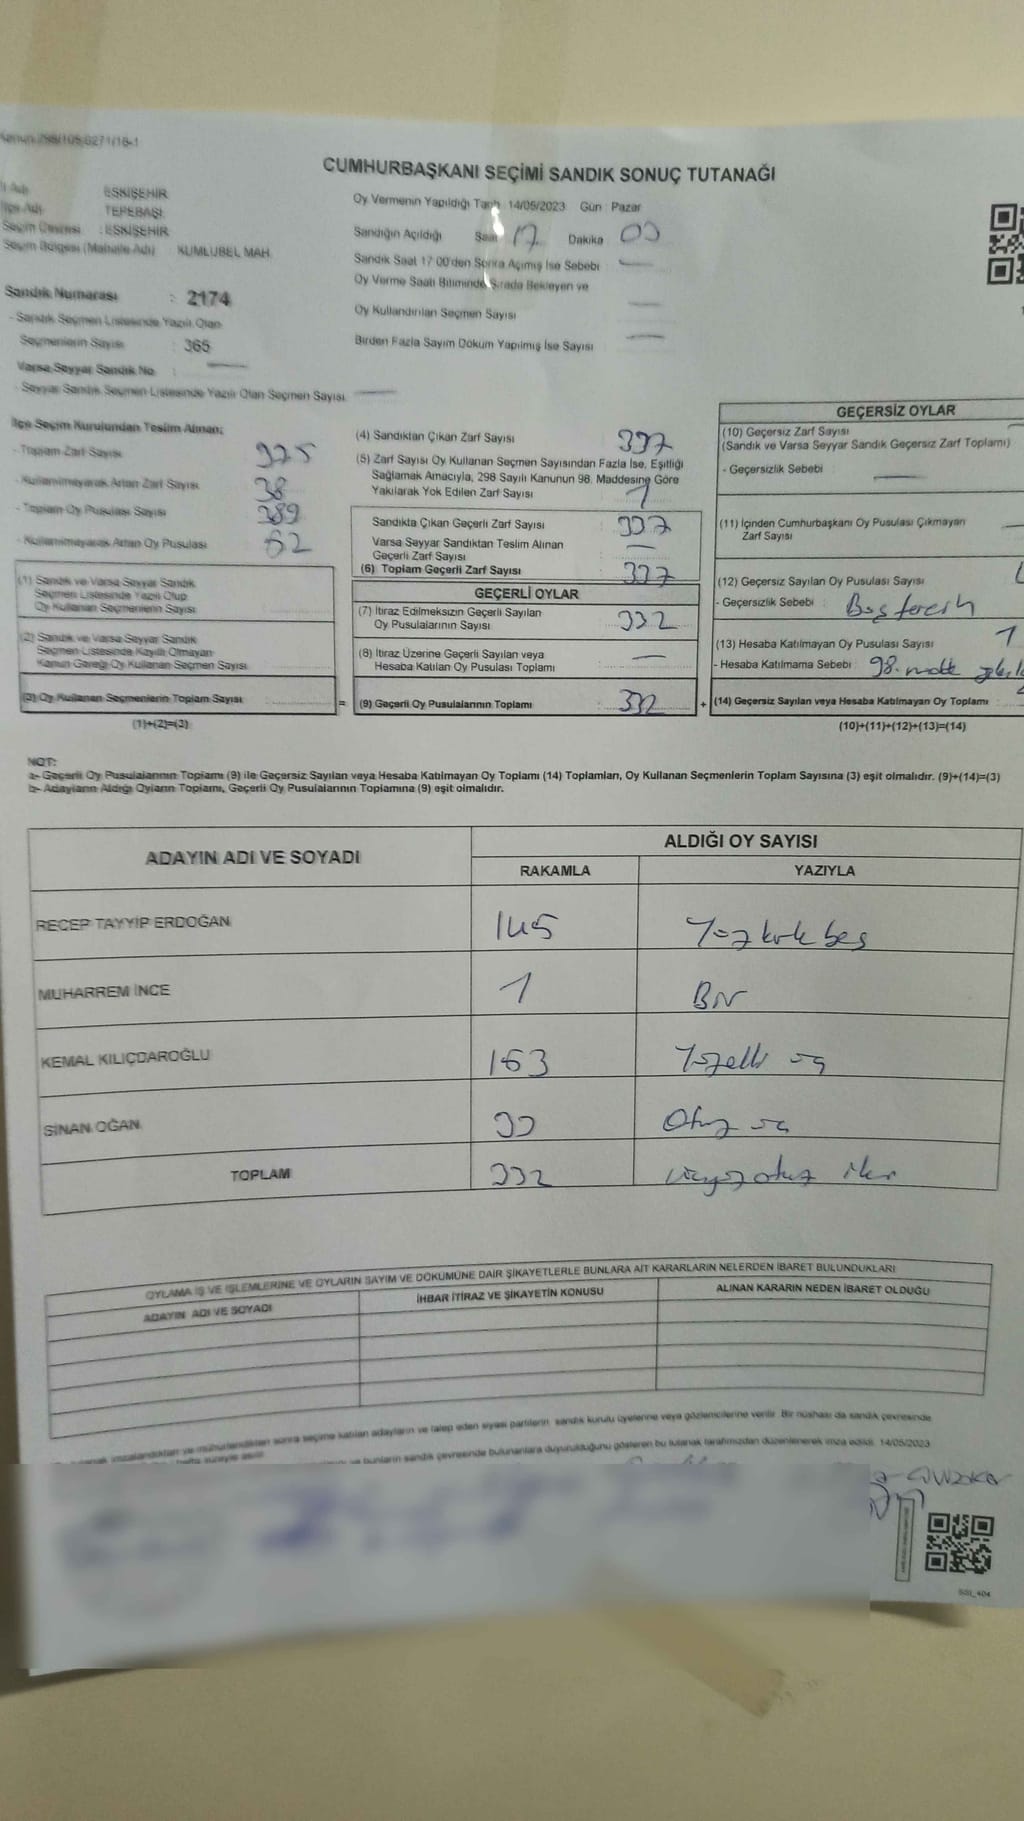 CUMHURBAŞKANI SEÇİMİ SANDIK SONUÇ TUTANAĞI
İl Adı ESKİŞEHİR
İlçe Adı TEPEBAŞI
Seçim Çevresi : ESKİŞEHİR
Seçim Bölgesi (Mahalle Adı) KUMLUBEL MAH.
Sandık Numarası : 2174
- Sandık Seçmen Listesinde Yazılı Olan
Seçmenlerin Sayısı : 365
Varsa Seyyar Sandık No :
- Seyyar Sandık Seçmen Listesinde Yazılı Olan Seçmen Sayısı
Oy Vermenin Yapıldığı Tarih 14/05/2023 Gün : Pazar
Sandığın Açıldığı Saat 17 Dakika 00
Sandık Saat 17:00'den Sonra Açılmış İse Sebebi
Oy Verme Saati Bitiminde Sırada Bekleyen ve
Oy Kullandırılan Seçmen Sayısı
Birden Fazla Sayım Döküm Yapılmış İse Sayısı
İlçe Seçim Kurulundan Teslim Alınan:
- Toplam Zarf Sayısı 375
- Kullanılmayarak Artan Zarf Sayısı 38
- Toplam Oy Pusulası Sayısı 389
- Kullanılmayarak Artan Oy Pusulası 52
(1) Sandık ve Varsa Seyyar Sandık
Seçmen Listesinde Yazılı Olup
Oy Kullanan Seçmenlerin Sayısı
(2) Sandık ve Varsa Seyyar Sandık
Seçmen Listesinde Kayıtlı Olmayan
Kanun Gereği Oy Kullanan Seçmen Sayısı
(3) Oy Kullanan Seçmenlerin Toplam Sayısı =
(1)+(2)=(3)
(4) Sandıktan Çıkan Zarf Sayısı 337
(5) Zarf Sayısı Oy Kullanan Seçmen Sayısından Fazla İse, Eşitliği
Sağlamak Amacıyla, 298 Sayılı Kanunun 98. Maddesine Göre
Yakılarak Yok Edilen Zarf Sayısı 1
Sandıkta Çıkan Geçerli Zarf Sayısı 337
Varsa Seyyar Sandıktan Teslim Alınan
Geçerli Zarf Sayısı
(6) Toplam Geçerli Zarf Sayısı 337
GEÇERLİ OYLAR
(7) İtiraz Edilmeksizin Geçerli Sayılan
Oy Pusulalarının Sayısı 332
(8) İtiraz Üzerine Geçerli Sayılan veya
Hesaba Katılan Oy Pusulası Toplamı
(9) Geçerli Oy Pusulalarının Toplamı 332 +
GEÇERSİZ OYLAR
(10) Geçersiz Zarf Sayısı
(Sandık ve Varsa Seyyar Sandık Geçersiz Zarf Toplamı)
- Geçersizlik Sebebi
(11) İçinden Cumhurbaşkanı Oy Pusulası Çıkmayan
Zarf Sayısı
(12) Geçersiz Sayılan Oy Pusulası Sayısı
- Geçersizlik Sebebi : Boş tercih
(13) Hesaba Katılmayan Oy Pusulası Sayısı 1
- Hesaba Katılmama Sebebi : 98. madde
(14) Geçersiz Sayılan veya Hesaba Katılmayan Oy Toplamı
(10)+(11)+(12)+(13)=(14)
NOT:
a- Geçerli Oy Pusulalarının Toplamı (9) ile Geçersiz Sayılan veya Hesaba Katılmayan Oy Toplamı (14) Toplamları, Oy Kullanan Seçmenlerin Toplam Sayısına (3) eşit olmalıdır. (9)+(14)=(3)
b- Adayların Aldığı Oyların Toplamı, Geçerli Oy Pusulalarının Toplamına (9) eşit olmalıdır.
ADAYIN ADI VE SOYADI ALDIĞI OY SAYISI
RAKAMLA YAZIYLA
RECEP TAYYİP ERDOĞAN 145 Yüzkırkbeş
MUHARREM İNCE 1 Bir
KEMAL KILIÇDAROĞLU 153 Yüzelli üç
SİNAN OĞAN 33 Otuz üç
TOPLAM 332 üçyüz otuz iki
OYLAMA İŞ VE İŞLEMLERİNE VE OYLARIN SAYIM VE DÖKÜMÜNE DAİR ŞİKAYETLERLE BUNLARA AİT KARARLARIN NELERDEN İBARET BULUNDUKLARI
ADAYIN ADI VE SOYADI İHBAR İTİRAZ VE ŞİKAYETİN KONUSU ALINAN KARARIN NEDEN İBARET OLDUĞU
imzalandıktan ve mühürlendikten sonra seçime katılan adayların ve talep eden siyasi partilerin, sandık kurulu üyelerine veya gözlemcilerine verilir. Bir nüshası da sandık çevresinde
hafta süreyle asılır.
ve bunların sandık çevresinde bulunanlara duyurulduğunu gösteren bu tutanak tarafımızdan düzenlenerek imza edildi. 14/05/2023